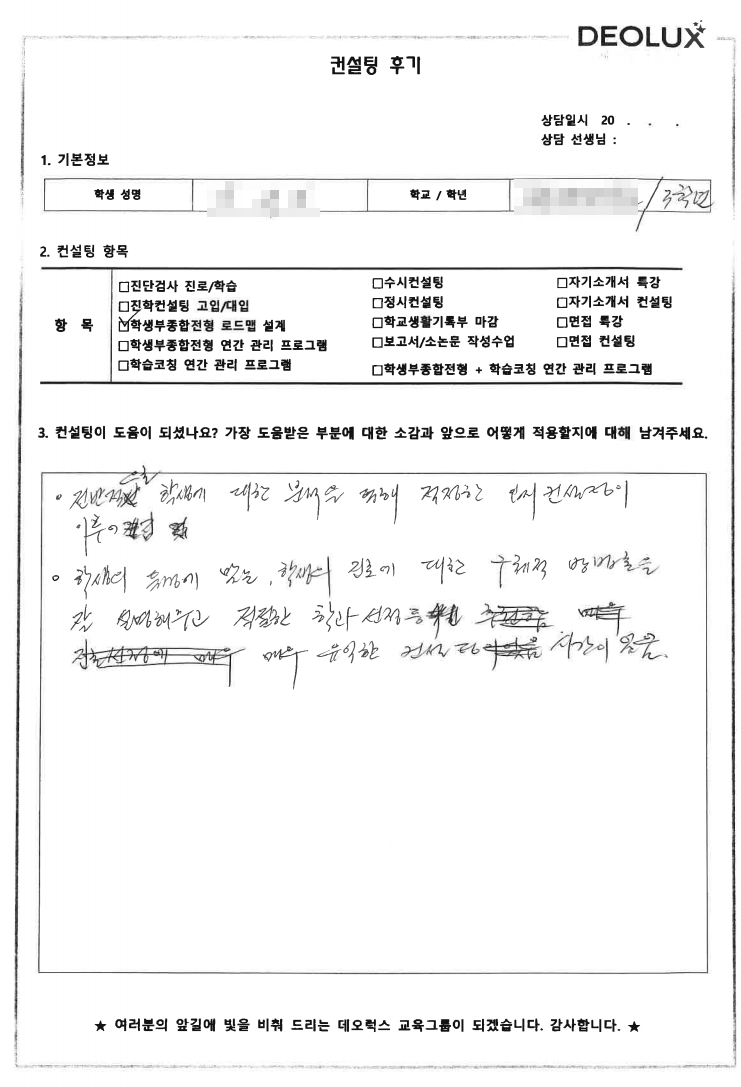 DEOLUX
컨설팅 후기
상담일시 20 . . .
상담 선생님 :
1. 기본정보
학생 성명 학교 / 학년 /3학년
2. 컨설팅 항목
항 목
□진단검사 진로/학습 □수시컨설팅 □자기소개서 특강
□진학컨설팅 고입/대입 □정시컨설팅 □자기소개서 컨설팅
☑학생부종합전형 로드맵 설계 □학교생활기록부 마감 □면접 특강
□학생부종합전형 연간 관리 프로그램 □보고서/소논문 작성수업 □면접 컨설팅
□학습코칭 연간 관리 프로그램 □학생부종합전형 + 학습코칭 연간 관리 프로그램
3. 컨설팅이 도움이 되셨나요? 가장 도움받은 부분에 대한 소감과 앞으로 어떻게 적용할지에 대해 남겨주세요.
학생에 대한 분석을 통해 적정한 입시 컨설팅이
이후의
학생의 특성에 맞는, 학생의 진로에 대한 구체적 방법론을
잘 설명해주고 적절한 학과 선정 등
매우 유익한 컨설팅 시간이었음.
★ 여러분의 앞길에 빛을 비춰 드리는 데오럭스 교육그룹이 되겠습니다. 감사합니다. ★